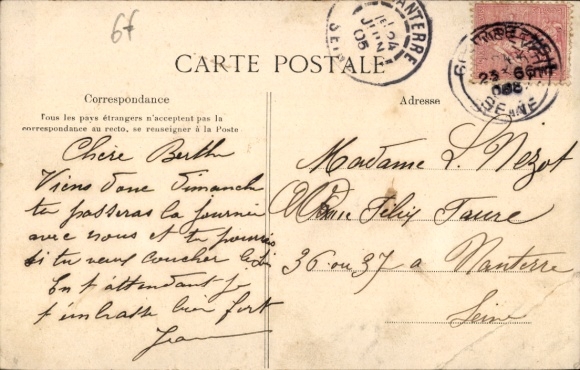 6f
NANTERRE
24
JUIN
05
SEINE
23
SEINE
CARTE POSTALE
Correspondance
Tous les pays étrangers n'acceptent pas la
correspondance au recto, se renseigner à la Poste
Adresse
Chère Berthe
Viens donc dimanche
tu passeras la journée
avec nous et tu pourras
si tu veux coucher ici
En t'attendant je
t'embrasse bien fort
Jean
Madame L. Nezot
Félix Faure
36 ou 37 à Nanterre
Seine